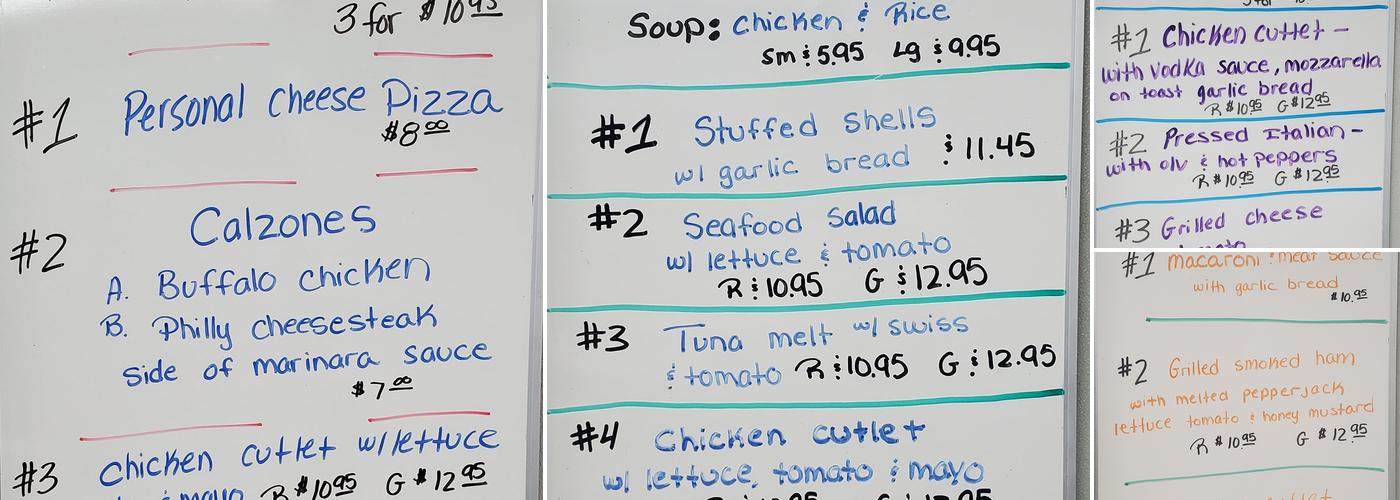 3 for $10.95
#1 Personal cheese Pizza
$8.00
#2 Calzones
A. Buffalo chicken
B. Philly cheesesteak
side of marinara sauce
$7.00
#3 Chicken cutlet w/lettuce
& mayo R $10.95 G $12.95
Soup: chicken & Rice
Sm $5.95 Lg $9.95
#1 Stuffed shells
w/ garlic bread $11.45
#2 Seafood Salad
w/ lettuce & tomato
R $10.95 G $12.95
#3 Tuna melt w/ swiss
& tomato R $10.95 G $12.95
#4 Chicken cutlet
w/ lettuce, tomato & mayo
#1 Chicken cutlet -
with vodka sauce, mozzarella
on toast garlic bread
R $10.95 G $12.95
#2 Pressed Italian -
with olv & hot peppers
R $10.95 G $12.95
#3 Grilled cheese
#1 macaroni & meat sauce
with garlic bread
$10.95
#2 Grilled smoked ham
with melted pepperjack
lettuce tomato & honey mustard
R $10.95 G $12.95